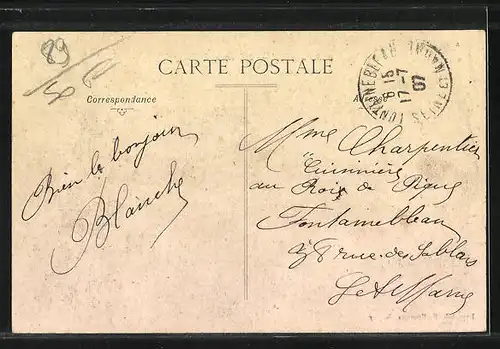 89
CARTE POSTALE
Correspondance
Adresse
FONTAINEBLEAU
8 15
17-7
07
SEINE ET MARNE
Bien le bonjour
Blanche
Mme Charpentier
Cuisinière
au Rois de Pique
Fontainebleau
rue des Sablons
Set Marne